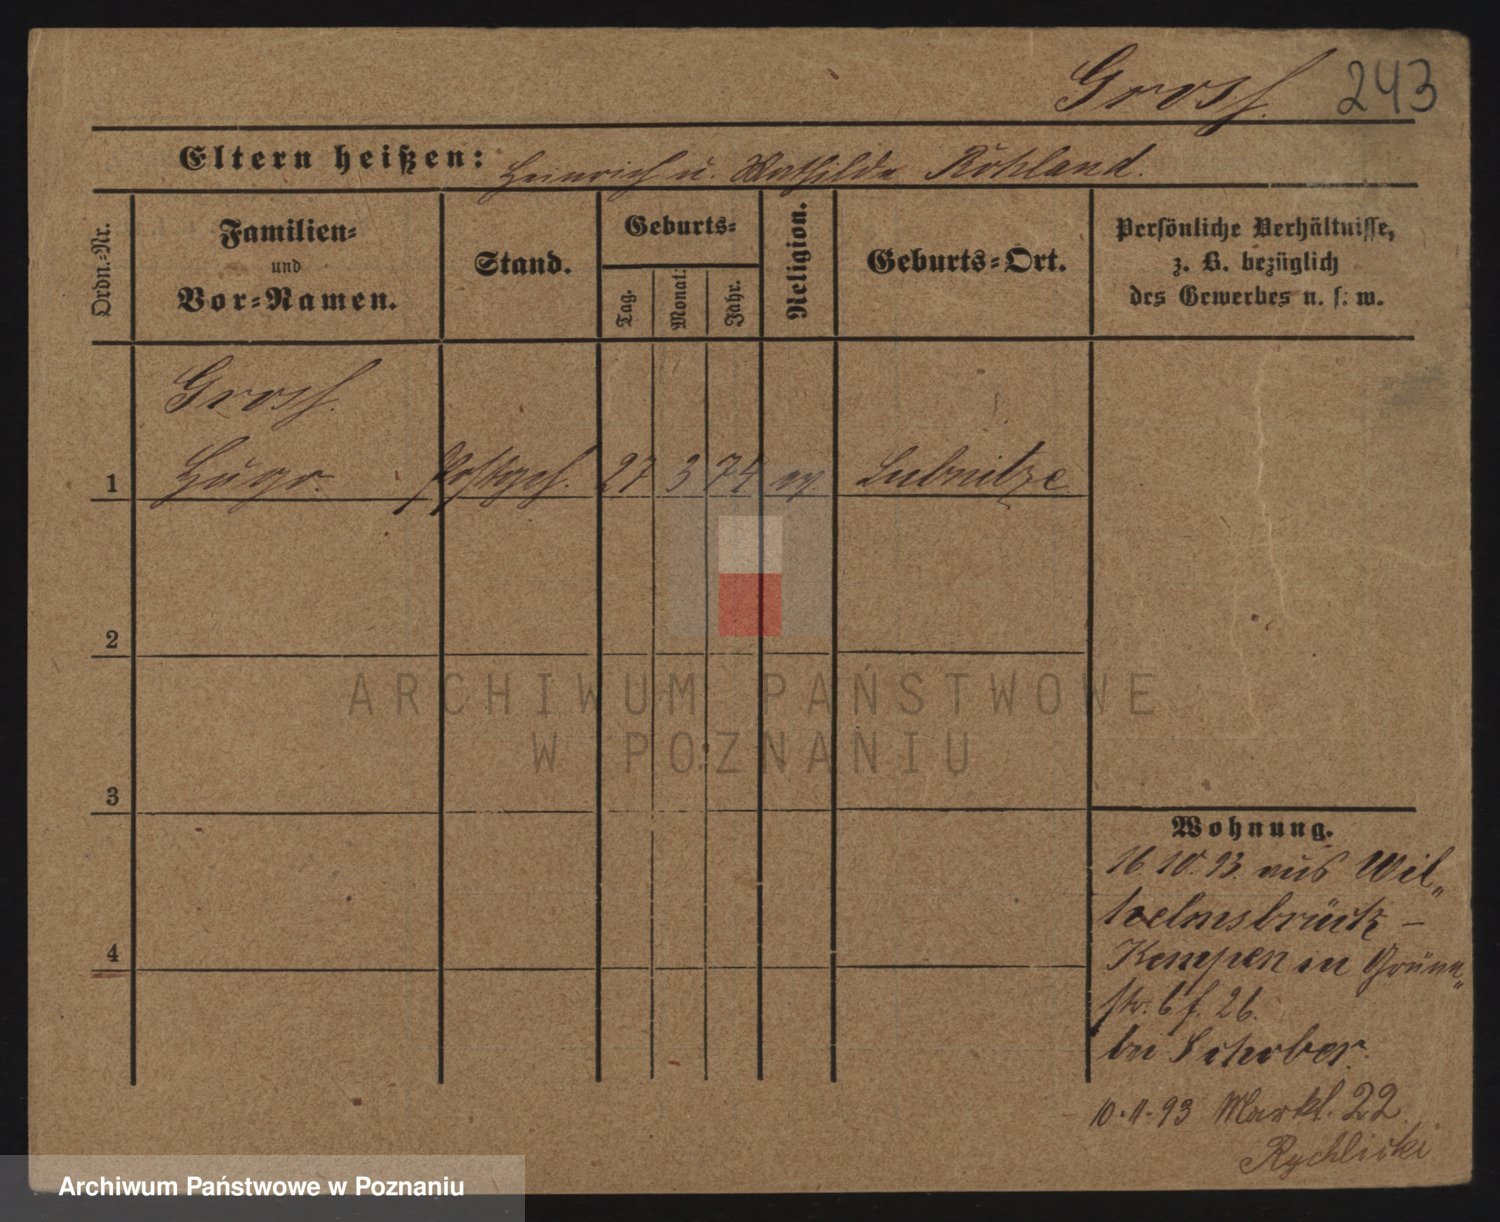 Gross.
243
Eltern heißen: Heinrich u. Mathilde Röhland.
Ordn.-Nr.
Familien-
und
Vor-Namen.
Stand.
Geburts-
Tag.
Monat.
Jahr.
Religion.
Geburts-Ort.
Persönliche Verhältnisse,
z. B. bezüglich
des Gewerbes u. s. w.
Gross.
1 Hugo. Postgeh. 27 3 74 ev. Lubnitze
2
3
4
Wohnung.
16.10.93. aus Wil„
helmsbrück –
Kempen in Grünn„
str. 6 f. 26.
bei Schober.
10.11.93 Markt. 22
Rychlicki
ARCHIWUM PAŃSTWOWE
W POZNANIU
Archiwum Państwowe w Poznaniu